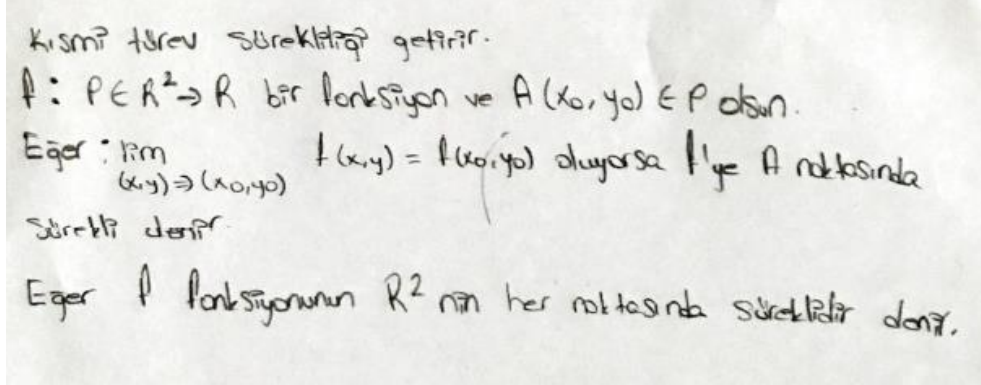 Kısmi türev sürekliliği getirir.
f: P ∈ R² → R bir fonksiyon ve A(x₀, y₀) ∈ P olsun.
Eğer : lim f(x,y) = f(x₀,y₀) oluyorsa f'ye A noktasında
(x,y) ⇒ (x₀,y₀)
sürekli denir
Eğer f fonksiyonunun R² nin her noktasında süreklidir denir.